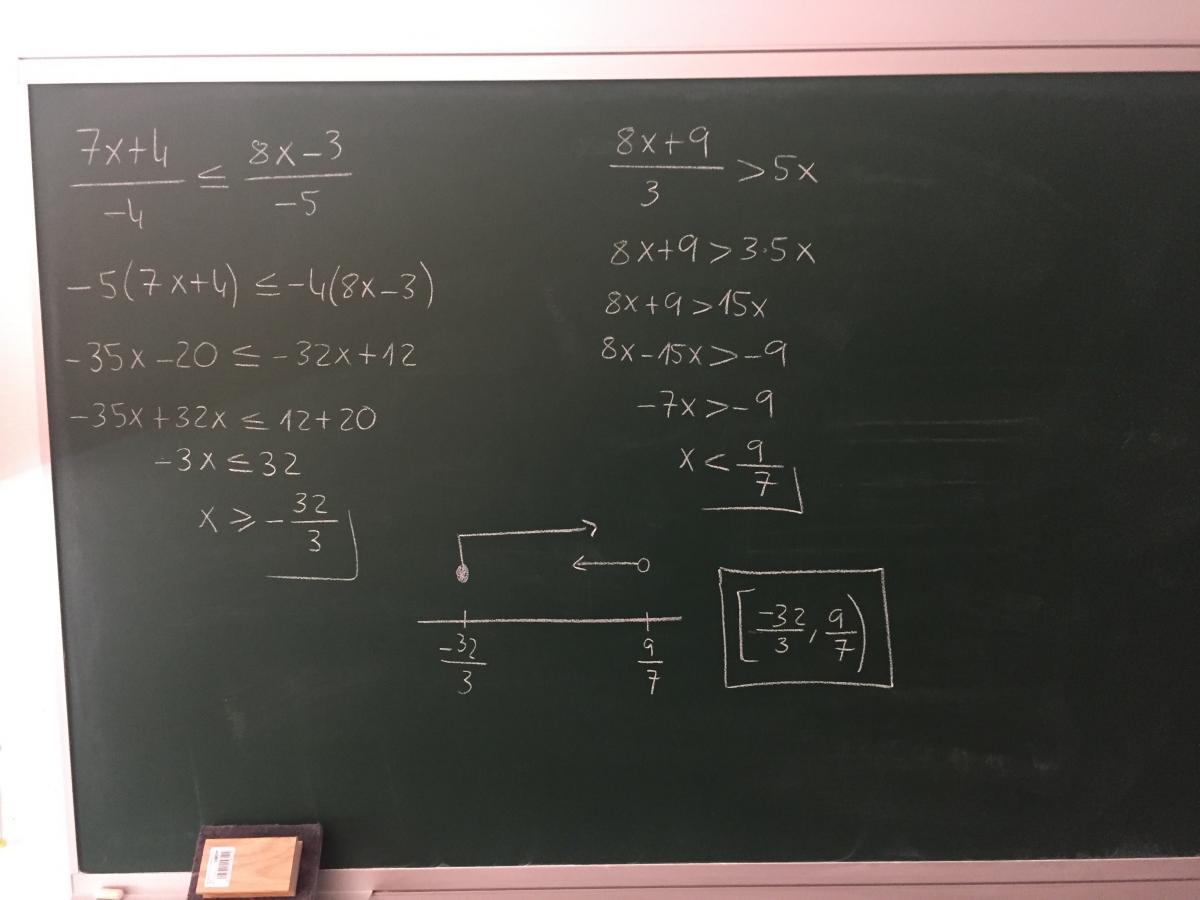 7x+4/-4 ≤ 8x-3/-5
-5(7x+4) ≤ -4(8x-3)
-35x-20 ≤ -32x+12
-35x+32x ≤ 12+20
-3x ≤ 32
x ≥ -32/3
8x+9/3 > 5x
8x+9 > 3·5x
8x+9 > 15x
8x-15x > -9
-7x > -9
x < 9/7
-32/3 9/7
[-32/3, 9/7)